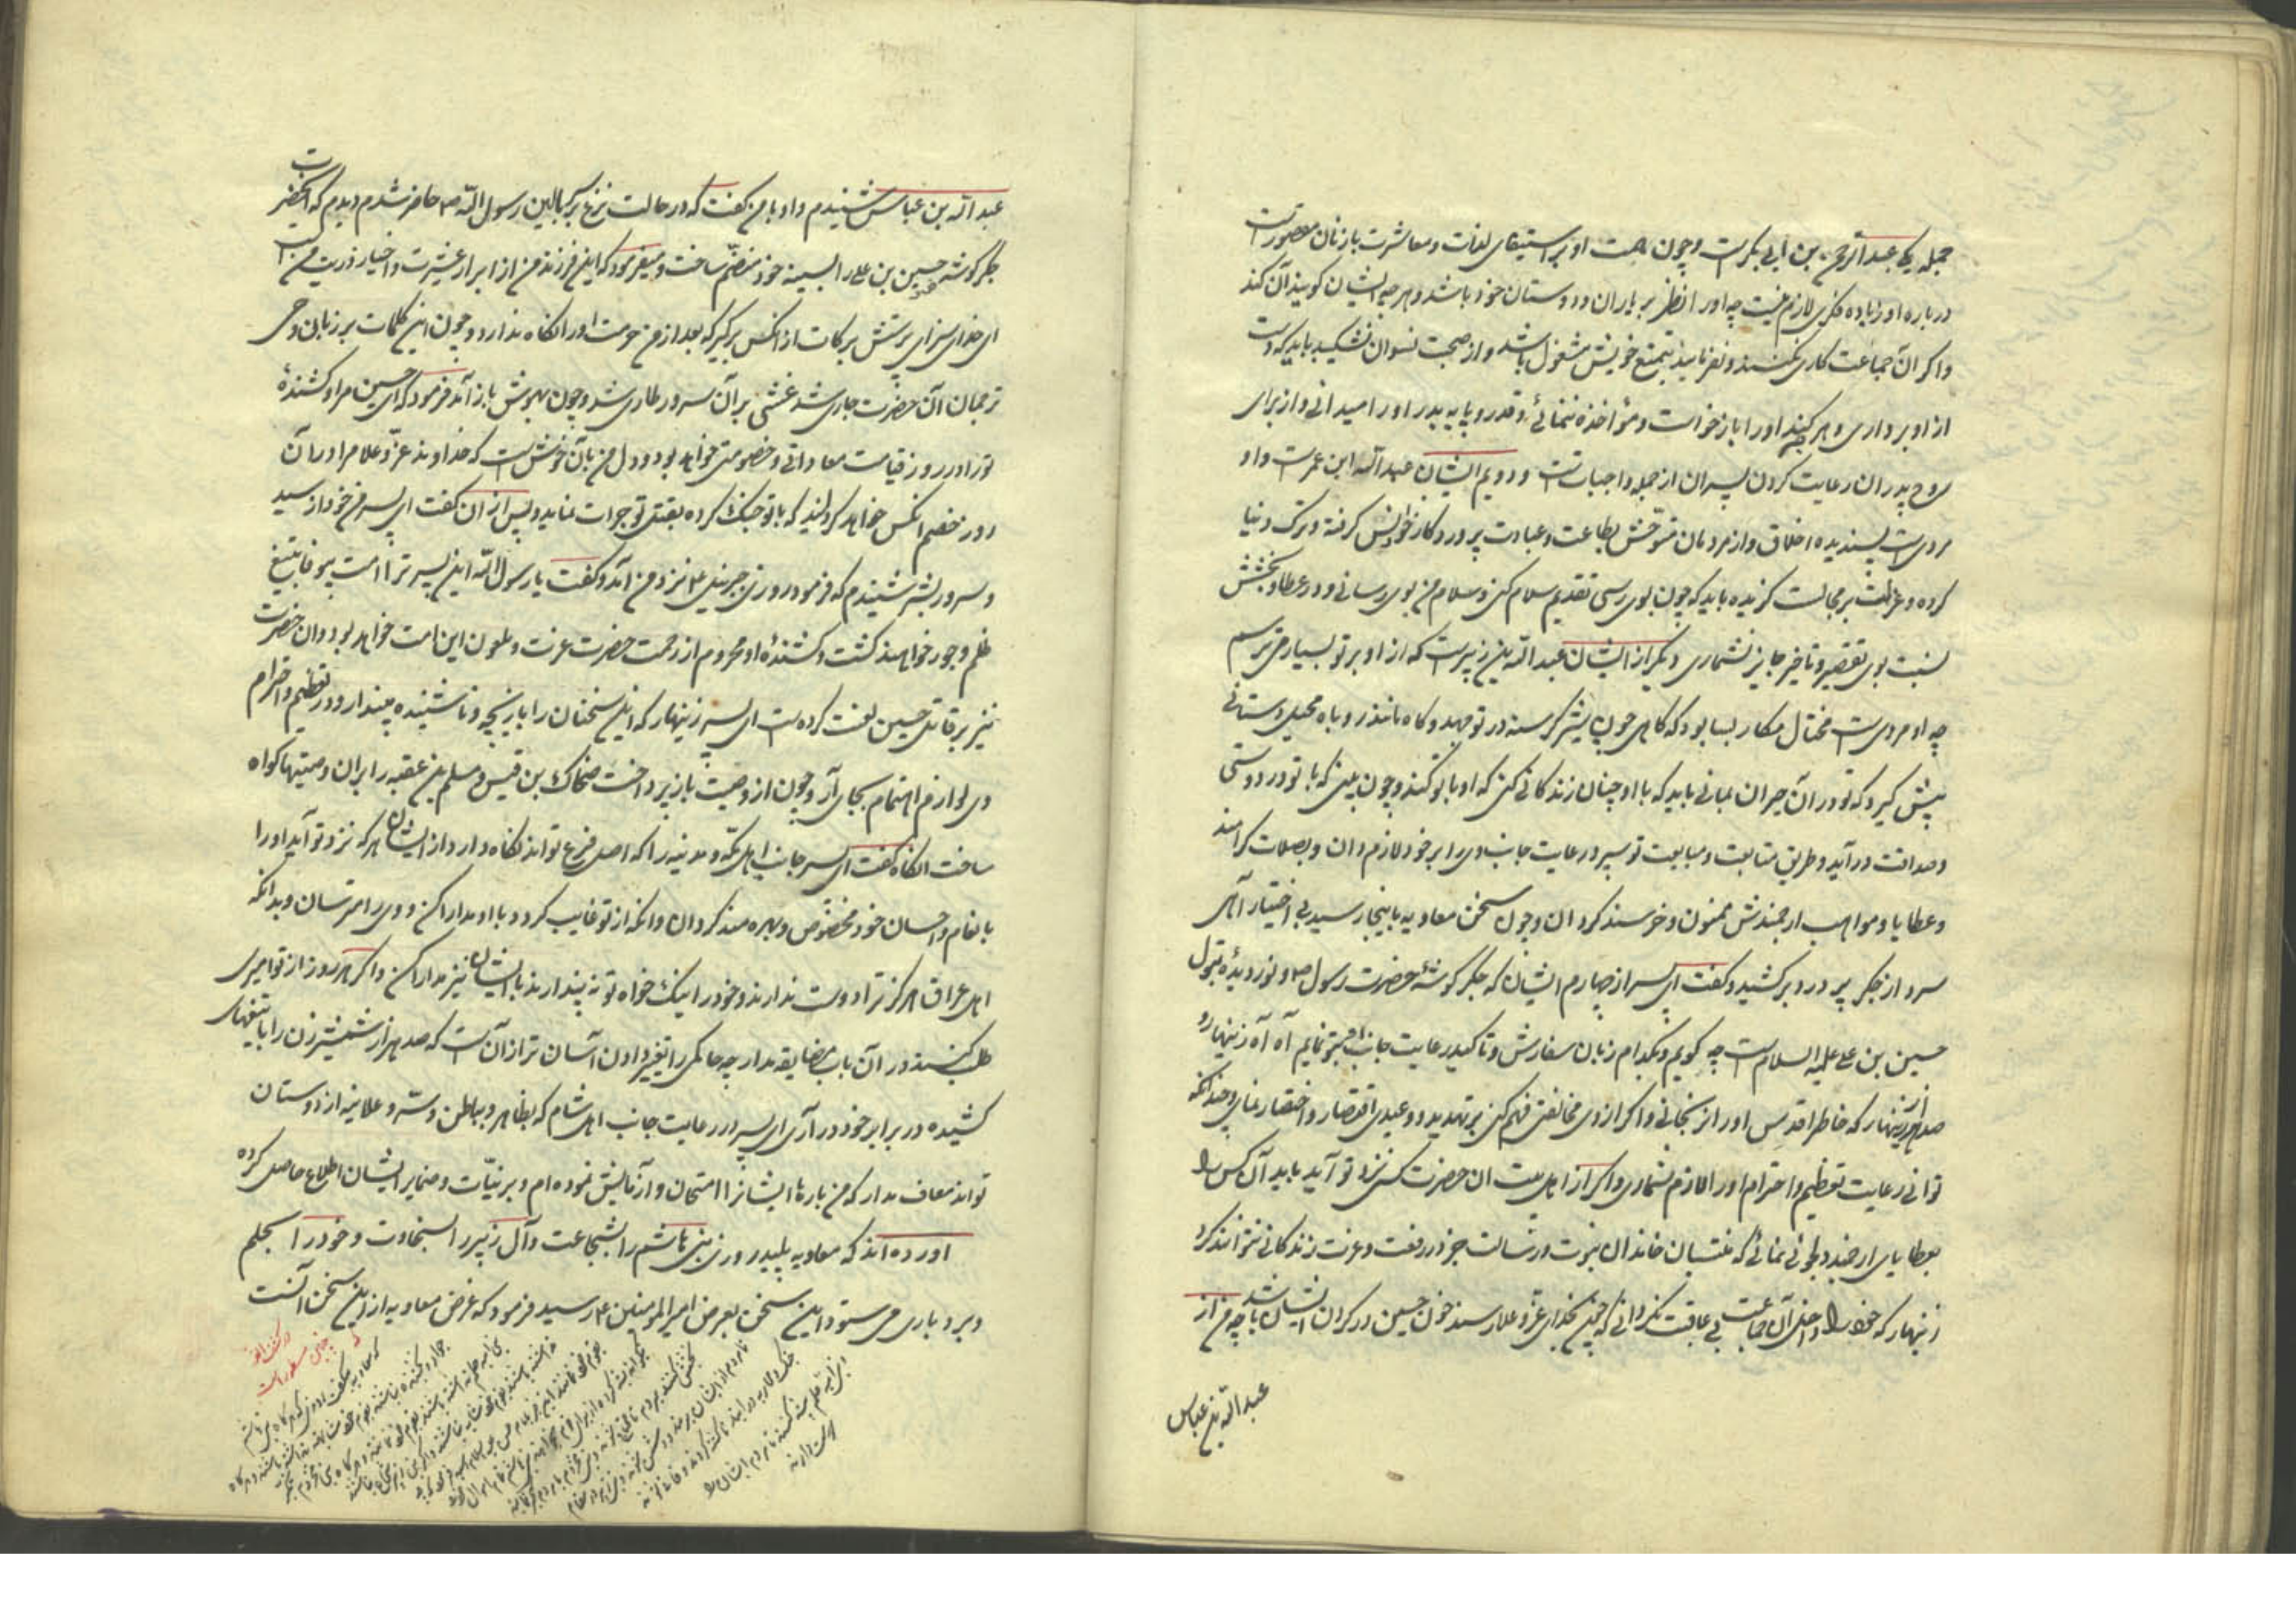 جمله یکی عبدالرحمن بن ابی بکرست و چون همت او بر استیفای لذات و معاشرت با زنان مقصورست
درباره او زیاده فکری لازم نیست چه او را نظر بر یاران و دوستان خود باشد و هر چه ایشان کویند آن کند
و اکر آن جماعت کاری نکنند و نفرمایند بتمتع خویش مشغول باشد و از صحبت نسوان نشکیبد باید که دست
از او برداری و هر چه کند او را بازخواست و مؤاخذه ننمائی و قدر و پایه پدر او را میدانی و از برای
روح پدران رعایت کردن پسران از جمله واجباتست و دویم ایشان عبدالله ابن عمرست و او
مردیست پسندیده اخلاق و از مردمان متوحش بطاعت و عبادت پروردکار خود انس کرفته و ترک دنیا
کرده و عزلت بر مجالست کزیده باید که چون بوی رسی تقدیم سلام کنی و سلام من بوی رسانی و در عطا و بخشش
نسبت بوی تقصیر و تاخیر جایز نشماری دیکر از ایشان عبدالله بن زبیرست که از او بر تو بسیار می ترسم
چه او مردیست محتال مکار بسا بود که کاهی چون شیر کرسنه در تو جهد و کاه مانند روباه محیل دستانی
پیش کیرد که تو در آن حیران بمانی باید که با او چنان زندکانی کنی که او با تو کند و چون بینی که با تو در دوستی
و صداقت درآید و طریق متابعت و مبایعت تو سپرد رعایت جانب وی را بر خود لازم دان و بصلات کرامند
و عطایا و مواهب ارجمندش ممنون و خرسند کردان و چون سخن معاویه باینجا رسید بی اختیار آهی
سرد از جکر پر درد برکشید و کفت ای پسر از چهارم ایشان که جکر کوشهٔ حضرت رسول ص و نور دیدهٔ بتول
حسین بن علی علیه السلامست چه کویم و بکدام زبان سفارش و تاکید رعایت جانب او بتو نمایم آه آه زینهار و
صد هزار زینهار که خاطر اقدس او را نرنجانی و اکر از وی مخالفتی فهم کنی بر تهدید و وعیدی اقتصار و اختصار نمای و چندانکه
توانی رعایت تعظیم و احترام او را لازم شماری و اکر از اهل بیت آن حضرت کسی نزد تو آید باید آن کس را
بعطایای ارجمند دلجوئی نمائی که منتسبان خاندان نبوت و رسالت جز در رفعت و عزت زندکانی نتوانند کرد
زینهار که خود را داخل آن جماعت بی عاقبت نکردانی که چون بخدای عز و علا رسند خون حسین در کردن ایشان باشد چه من از
عبدالله بن عباس
عبدالله بن عباس شنیدم و او با من کفت که در حالت نزع بر بالین رسول الله ص حاضر شدم دیدم که آنحضرت
جکر کوشه خود حسین بن علی را بسینه خود منضم ساخت و میفرمود که این فرزند من از ابرار عشیرت و اخیار ذریت منست
ای خدای سزای پرستش برکات از آنکس برکیر که بعد از من حرمت او را نکاه ندارد و چون این کلمات بر زبان وحی
ترجمان آن حضرت جاری شد غشی بر آن سرور طاری شد و چون بهوش باز آمد فرمود که ای حسین مرا و کشندهٔ
تو را در روز قیامت معاداتی و خصومتی خواهد بود و دل من بآن خوش است که خداوند عز و علا مرا در آن
روز خصم آنکس خواهد کردانید که با تو جنک کرده بقتل تو جرات نماید و پس از آن کفت ای پسر من خود از سید
و سرور بشر شنیدم که فرمود روزی جبرئیل ع نزد من آمد و کفت یا رسول الله این پسر ترا امت بیوفا بتیغ
ظلم و جور خواهند کشت و کشندهٔ او محروم از رحمت حضرت عزت و ملعون این امت خواهد بود و آن حضرت
نیز بر قاتل حسین لعنت کرده ست ای پسر زینهار که این سخنان را بازیچه و ناشنیده میندار و در تعظیم و احترام
وی لوازم اهتمام بجای آر و چون از وصیت باز پرداخت ضحاک بن قیس و مسلم بن عقبه را بر آن وصیتها کواه
ساخت آنکاه کفت ای پسر جانب اهل مکه و مدینه را که اصل و فرع تواند نکاه دار و از ایشان هر که نزد تو آید او را
بانعام و احسان خود مخصوص و بهره مند کردان و آنکه از تو غایب کردد با او مدارا کن و وی را مترسان و بدانکه
اهل عراق هرکز ترا دوست ندارند و خود را نیک خواه تو نه پندارند با ایشان نیز مدارا کن و اکر هر روز از تو امیری
طلب کنند در آن باب مضایقه مدار چه حاکمی را تغییر دادن آسان تر از آنست که صد هزار شمشیر زن را با تیغهای
کشیده در برابر خود در آری ای پسر در رعایت جانب اهل شام که بظاهر و باطن و سر و علانیه از دوستان
تواند معاف مدار که من بارها ایشانرا امتحان و آزمایش نموده ام و بر نیات و ضمایر ایشان اطلاع حاصل کرده
آورده اند که معاویه پلید روزی بنی هاشم را بشجاعت و آل زبیر را بسخاوت و خود را بحلم
و بردباری می ستود این سخن بعرض امیرالمومنین ع رسید فرمود که غرض معاویه از این سخن آنست